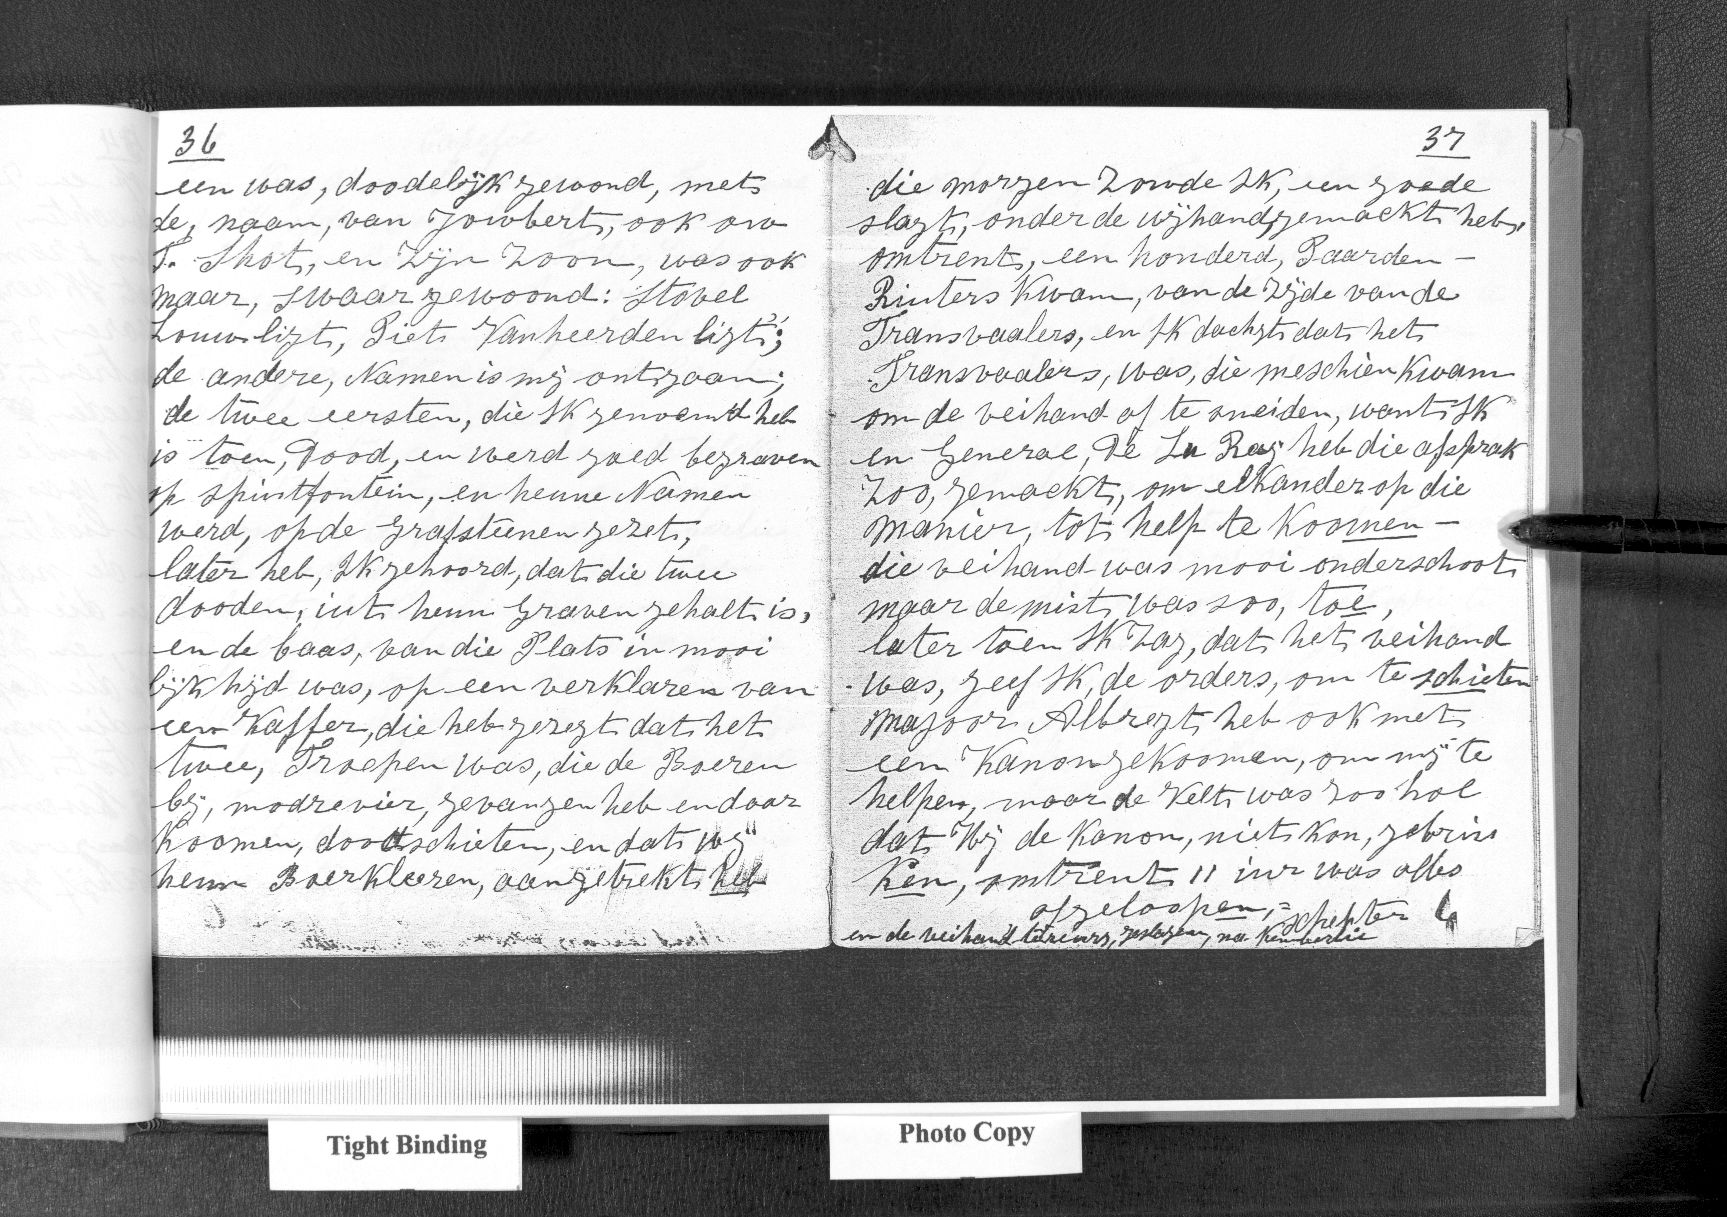 36
een was, doodelijk gewond, met
de, naam, van Jowbert, ook ow
T. Shot, en Zijn Zoon, was ook
maar, swaar gewoond: Stovel
Louw ligt, Piet Vanheerden ligt;
de andere, Namen is mij ontgaan;
de twee eersten, die Ik genoemd heb
is toen, Dood, en werd goed begraven
op spintfontein, en henne Namen
werd, op de Grafsteenen gezet,
later heb, Ik gehoord, dat die twee
dooden, iut henn Graven gehalt is,
en de baas, van die Plats in mooi
lijkhijd was, op een verklaren van
een Kaffer, die heb gezegt dat het
twee, Troepen was, die de Boeren
bij, modrevier, gevangen heb en daar
Koomen, doodschieten, en dat wij
henn Boerkleeren, aangetrekt heb
37
die morgen Zowde Ik, een goede
slagt, onder de vijhand gemackt heb,
omtrent, een honderd, Paarden-
Riuters Kwam, van de Zijde van de
Transvaalers, en Ik dachgt dat het
Transvaalers, was, die meschien Kwam
om de veihand af te sneiden, want Ik
en Generae, De La Raij heb die afsprak
Zoo, gemackt, om elkander op die
manier, tot help te Koomen -
die veihand was mooi onderschoot
maar de mist, was soo, toe,
later toen Ik Zag, dat het veihand
was, geef Ik, de orders, om te schieten
Majoor Albregt heb ook met
een Kanon gekoomen, om mij te
helpen, maar de Velt was Zoo hol
dat Hij de Kanon, niet Kon, gebrin
Ken, omtrent 11 iur was alles
afgeloopen,=
schepter 6
en de veihand tereurg, geslagen, na Kemberlie
Tight Binding
Photo Copy